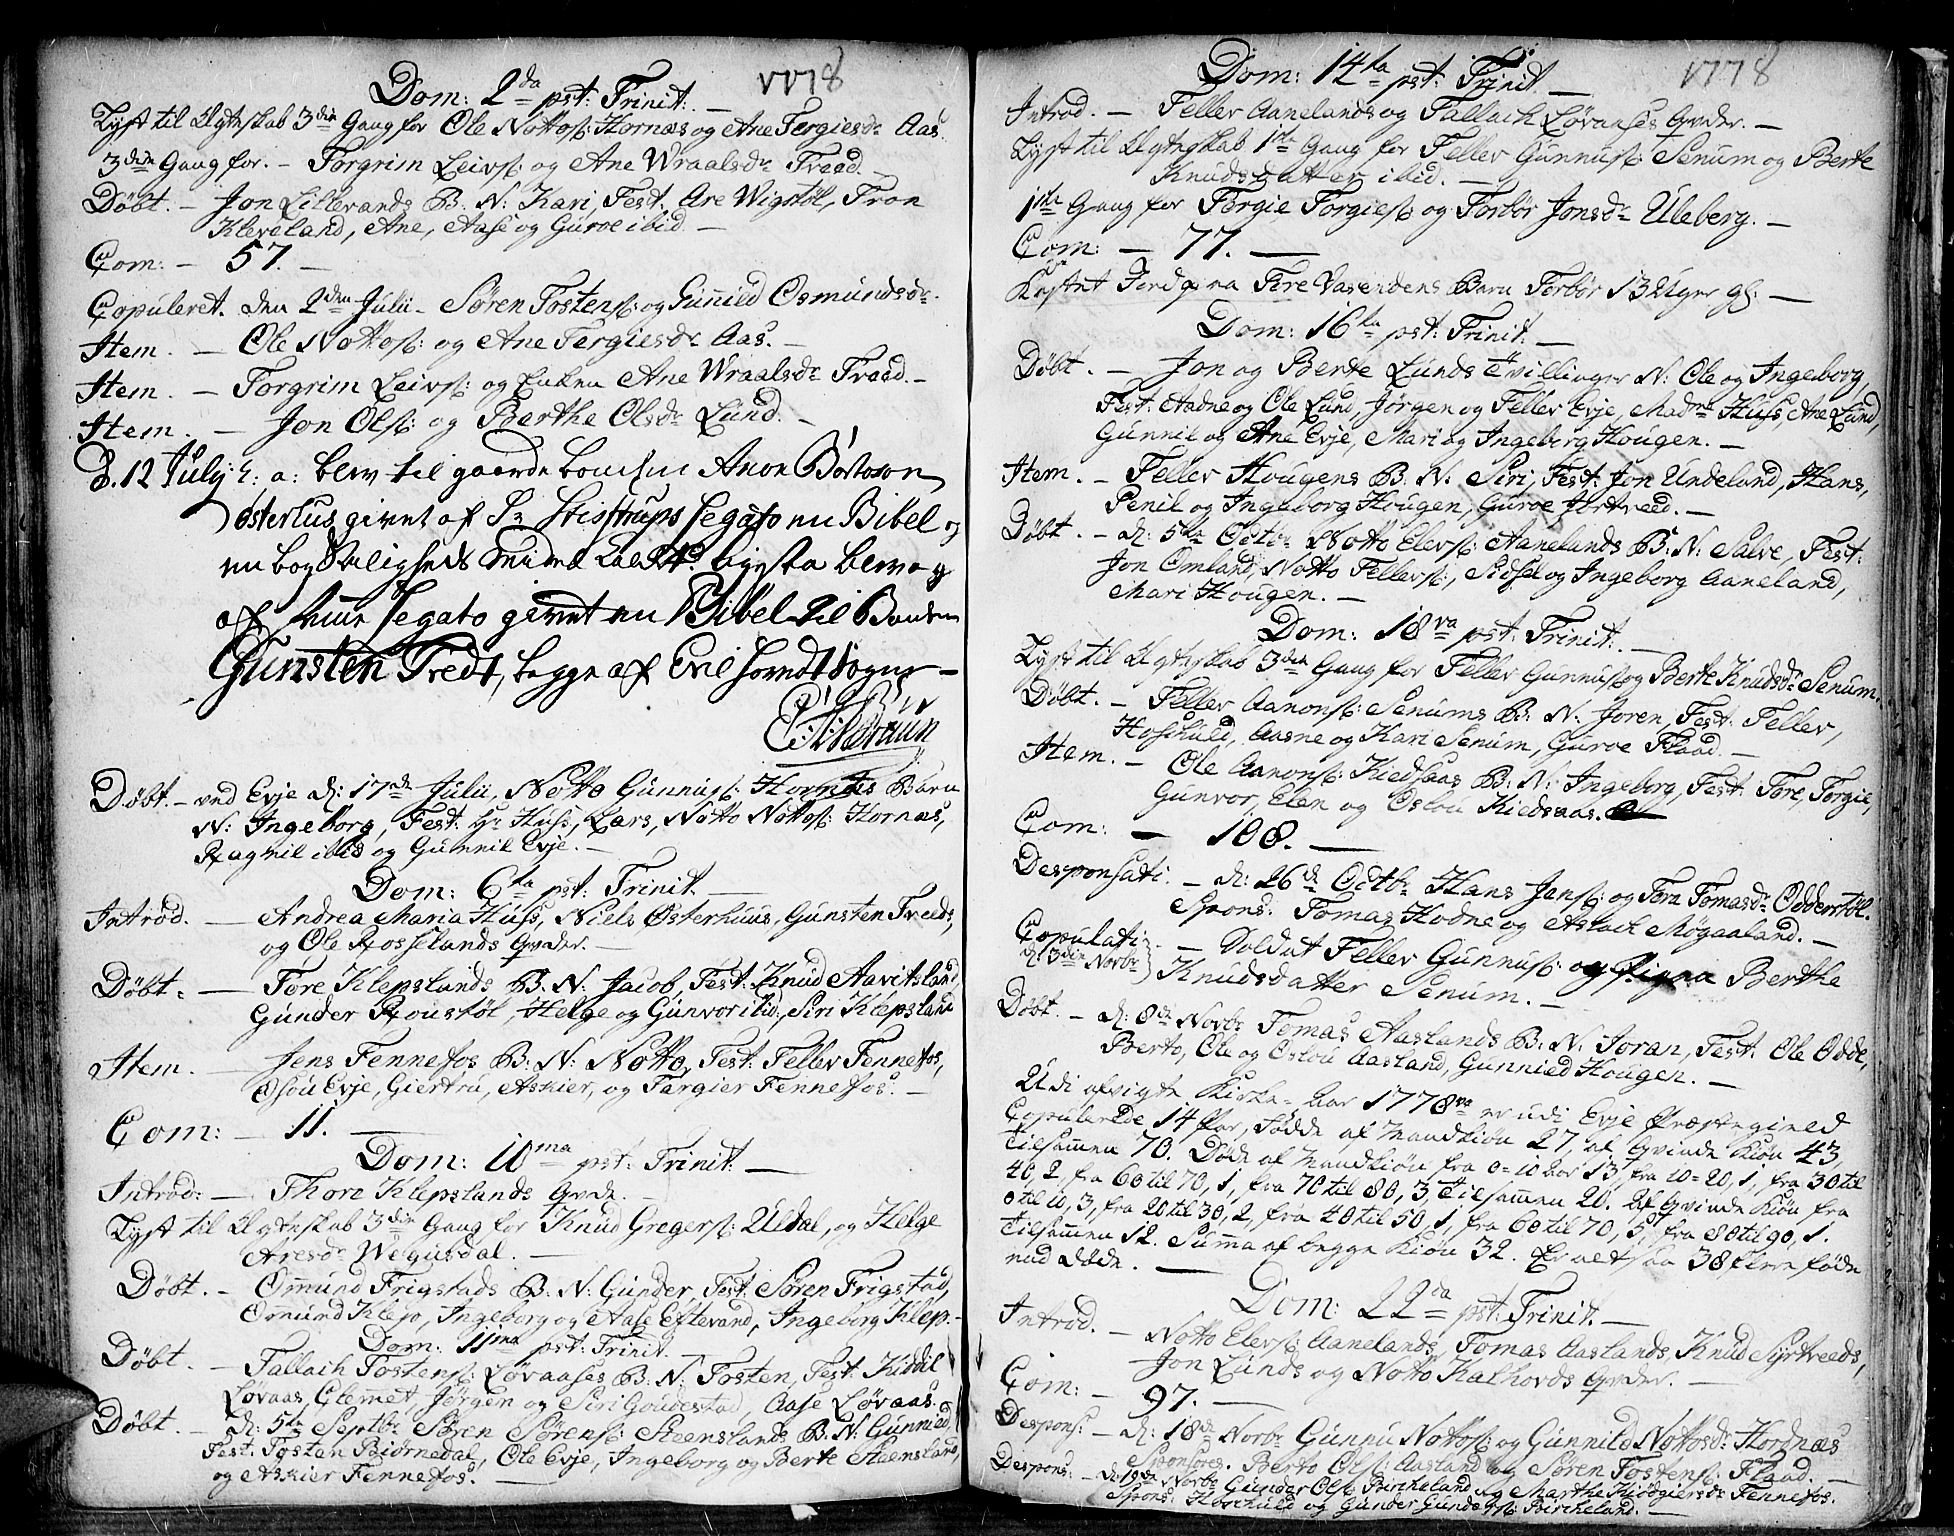 1778
Dom: 2da pst: Trinit: —
Lyst til Ægteskab 3die Gang for Ole Nottoss: Hornæs og Ane Tergiesdr Aas.
3die Gang for. – Torgrim Leivss: og Ane Wraalsdr Treed. –
Döbt. – Jon Lillerands B. N. Kari, Test. Are Wigstöl, Tron
Kleveland, Ane, Aase og Guroe ibid. –
Com: – 57. –
Copuleret. den 2den Julii – Sören Tostenss: og Gunild Osmundsdr.
Item. – Ole Nottoss: og Ane Tergiesdr Aas. –
Item. – Torgrim Leivss: og Enken Ane Wraalsdr Treed. –
Item. – Jon Olss: og Berthe Olsdr Lund. –
D. 12 July: h: a: blev til gaardebonden Anon Börtoson
Østerhus givet af Sr Stistrups Legato en Bibel og
en bog Saligheds
af samme Legato givet en Bibel til Bonden
Gunsten Tredt, begge af Evie hovedsogn –
Döbt. – ved Evje d: 17de Julii, Notto Gunnuss: Hornæs Barn
N: Ingeborg, Test: Hr Huss, Lars, Notto Nottoss: Hornæs,
Ragnil ibid og Gunnil Evje. –
Dom: 6ta pst: Trinit. –
Introd. – Andrea Maria Huss, Niels Østerhuus, Gunsten Treeds,
og Ole Rosselands Qvder. –
Döbt. – Tore Klepslands B. N. Jacob, Test: Knud Aavitsland,
Gunder Roustöl, Helge og Gunvor ibid:, Siri Klepsland
Item. – Jens Fennefos B: N: Notto, Test: Tellev Fennefos,
Osou Evje, Giertru, Askier, og Targier Fennefos. –
Com: – 11. –
Dom: 10ma pst: Trinit: –
Introd: – Thore Klepslands Qvde. –
Lyst til Ægteskab 3die Gang for Knud Gregerss: Uldal, og Helge
Aresdr Weigusdal. –
Döbt. – Omund Frigstads B. N. Gunder, Test: Sören Frigstad,
Omund Klep, Ingeborg og Aase Eftevand, Ingeborg Klep. –
Dom: 11ma pst: Trinit. –
Döbt. – Tallach Tostenss: Lövaases B: N. Tosten, Test: Kiddil
Lövaas, Clemmet, Jörgen og Siri Goudestad, Aase Lövaas.
Döbt. – d: 5te Septbr Sören Sörenss: Steenslands B. N: Gunnild
Test: Tosten Biörnedal, Ole Evje, Ingeborg og Berte Steensland,
og Askier Fennefos. –
1778
Dom: 14ta pst: Trinit –
Introd. – Tellev Aanelands og Tallach Lövaases Qvder. –
Lyst til Ægteskab 1ste Gang for Tellev Gunnuss: Senum og Berte
Knudsdatter ibid. –
1ste Gang for Tergie Torgiess: og Torbör Jonsdr Uleberg. –
Com: – 77. –
Kastet Jord paa Tore Vasendens Barn Torbör 13 Uger gl: –
Dom: 16ta pst: Trinit: –
Döbt. – Jon og Berte Lunds Tvillinger N: Ole og Ingeborg,
Test: Aadne og Ole Lund, Jörgen og Tellev Evje, Madme Huss, Ane Lund,
Gunnil og Ane Evje, Mari og Ingeborg Hougen. –
Item. – Tellev Hougens B. N. Siri, Test: Jon Undeland, Hans,
Penil og Ingeborg Hougen, Guroe Fortveed. –
Döbt. – d: 5te Octbr Notto Elevss: Aanelands B: N: Salve, Test:
Jon Omland, Notto Tellevss:, Sidsel og Ingeborg Aaneland,
Mari Hougen. –
Dom: 18va pst: Trinit. –
Lyst til Ægteskab 3die Gang for Tellev Gunnuss og Berte Knudsdr Senum.
Döbt. – Tellev Aanonss: Senums B: N: Joren, Test: Tellev,
Hoschuld, Aasne og Kari Senum, Guroe Flaad. –
Item. – Ole Aanonss: Kiedsaas B: N: Ingeborg, Test: Tore, Torgie,
Gunvor, Elen og Oslou Kiedsaas.
Com: – 108. –
Desponsati. – d: 26de Octbr Hans Jenss: og Tora Tomasdr Odderstöl.
Spons: Tomas Hodne og Aslach Mögaaland. –
Copulati – Soldat Tellev Gunnuss: og Pigen Berthe
d: 3die Novbr Knudsdatter Senum. –
Döbt. – d: 8de Novbr Tomas Aaslands B: N. Joran, Test: Ole Odde,
Berto, Ole og Oslou Aasland, Gunnild Hougen. –
Udi afvigte Kirke-Aar 1778 er udi Evje Præstegield
Copulerede 14 Par, Födde af Mandkiön 27, af Qvinde Kiön 43,
Tilsammen 70. Döde af Mandkiön fra 0=10 Aar 13, fra 10=20, 1, fra 30 til
40, 2, fra 60 til 70, 1, fra 70 til 80, 3, Tilsammen 20. Af Qvinde Kiön fra
0 til 10, 3, fra 20 til 30, 2, fra 40 til 50, 1, fra 60 til 70, 5, fra 80 til 90, 1.
Tilsammen 12. Summa af begge Kiön 32. Er altsaa 38 flere födde
end Döde. –
Dom: 22da pst: Trinit. –
Introd. – Notto Elevss: Aanelands, Tomas Aaslands, Knud Syrtveeds,
Jon Lunds og Notto Kalhovds Qvder. –
Com: – 97. –
Despons: – d: 18de Novbr Gunnu Nottoss: og Gunnild Nottosdr Hordnæs
Sponsores. Berto Olss: Aasland og Sören Tostenss: Flaad. –
Despons: – d: 19de Novbr Gunder Olss: Birckeland og Marthe Kiödgiersdr Fennefos.
Spons: Horchuld og Gunder Gunderss: Birckeland. –